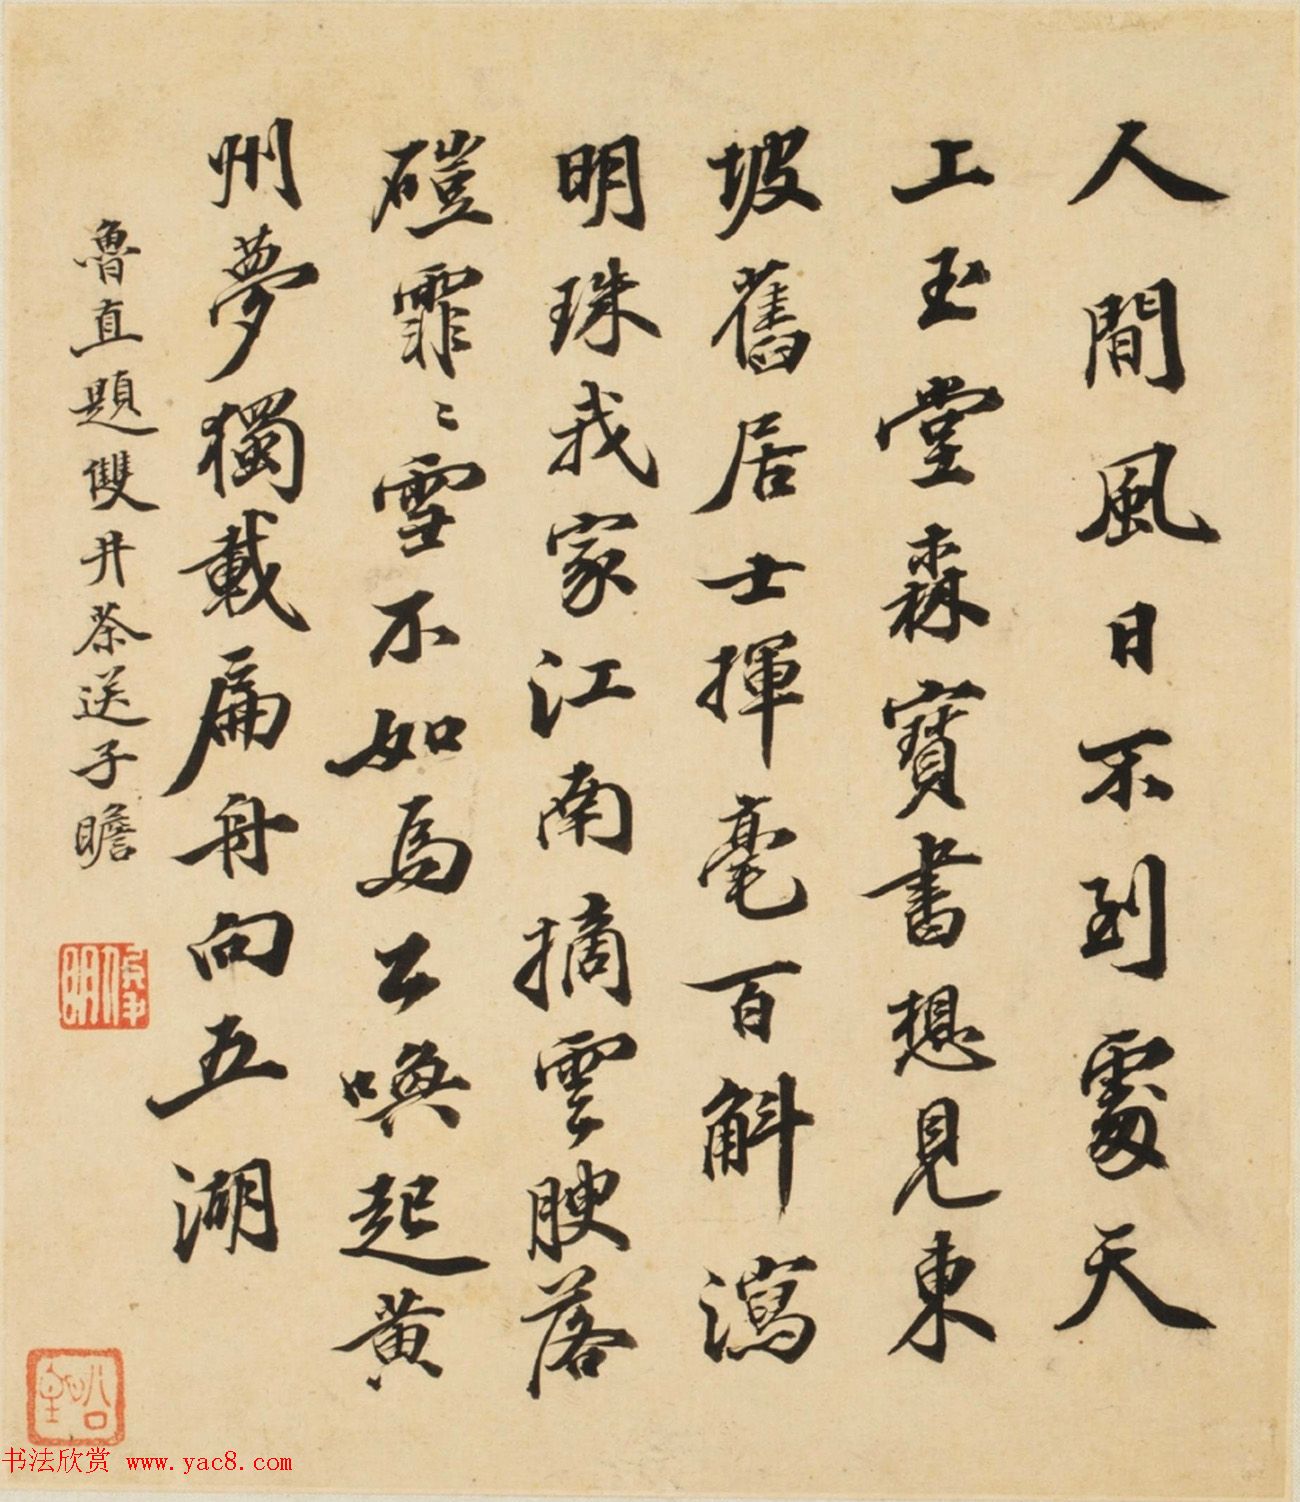 人間風日不到處天
上玉堂森寶書想見東
坡舊居士揮毫百斛瀉
明珠我家江南摘雲腴落
磑霏〻雪不如為公喚起黄
州夢獨載扁舟向五湖
魯直題雙井茶送子瞻
书法欣赏 www.yac8.com